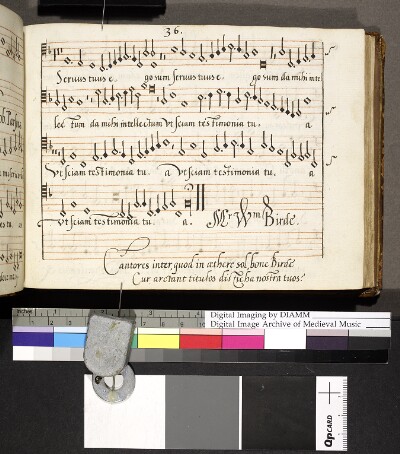 36.
Seruus tuus e. go sum seruus tuus e. go sum da mihi inte
lec tum da mihi intellectum Vt sciam testimonia tu. a
Vt sciam testimonia tu. a Vt sciam testimonia tu. a
Vt sciam testimonia tu. a. Mr Wm Birde.
Cantores inter, quod in æthere sol, bone Birde
Cur arctant titulos disticha nostra tuos?
Digital Imaging by DIAMM
Digital Image Archive of Medieval Music
QPCARD